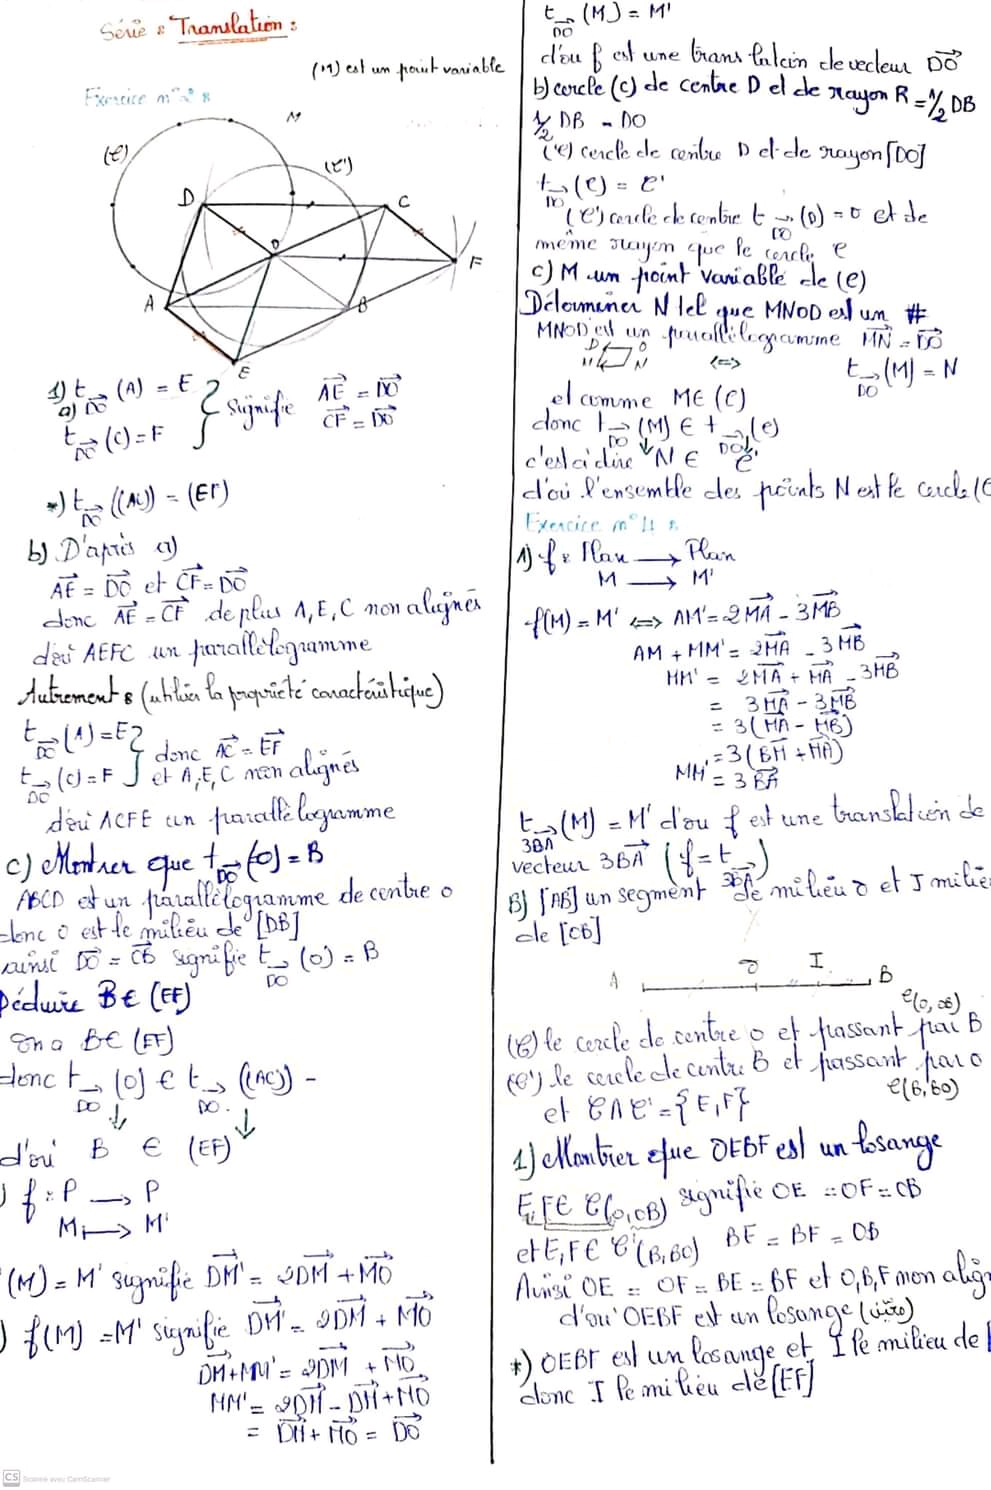 Série : Translation :
(M) est un point variable
Exercice n°2 :
M
(C)
(C')
D
C
O
F
A
B
E
1) t_DO→ (A) = E
a)
t_DO→ (C) = F
} Signifie AE→ = DO→
CF→ = DO→
*) t_DO→ ((AC)) = (EF)
b) D'après a)
AE→ = DO→ et CF→ = DO→
donc AE→ = CF→ de plus A, E, C non alignés
d'où AEFC un parallélogramme
Autrement : (utiliser la propriété caractéristique)
t_DO→ (A) = E
t_DO→ (C) = F
} donc AC→ = EF→
et A, E, C non alignés
d'où ACFE un parallélogramme
c) Montrer que t_DO→ (O) = B
ABCD est un parallélogramme de centre O
donc O est le milieu de [DB]
ainsi DO→ = OB→ signifie t_DO→ (O) = B
Déduire B ∈ (EF)
On a B ∈ (EF)
donc t_DO→ (O) ∈ t_DO→ ((AC)) -
↓ ↓
d'où B ∈ (EF)
) f : P → P
M ↦ M'
(M) = M' signifie DM'→ = 2DM→ + MO→
) f(M) = M' signifie DM'→ = 2DM→ + MO→
DM→ + MM' = 2DM→ + MO→
MM' = 2DM→ - DM→ + MO→
= DM→ + MO→ = DO→
t_DO→ (M) = M'
d'où f est une translation de vecteur DO→
b) cercle (C) de centre D et de rayon R = 1/2 DB
1/2 DB = DO
(C) cercle de centre D et de rayon [DO]
t_DO→ (C) = C'
(C') cercle de centre t_DO→ (D) = O et de
même rayon que le cercle C
c) M un point variable de (C)
Déterminer N tel que MNOD est un #
MNOD est un parallélogramme MN→ = DO→
D O
M N
⟺ t_DO→ (M) = N
et comme M ∈ (C)
donc t_DO→ (M) ∈ t_DO→ (C)
↓ ↓
c'est à dire N ∈ C'
d'où l'ensemble des points N est le cercle (C
Exercice n°11 :
1) f : Plan → Plan
M → M'
f(M) = M' ⟺ AM' = 2MA→ - 3MB→
AM + MM' = 2MA→ - 3MB→
MM' = 2MA→ + MA→ - 3MB→
= 3MA→ - 3MB→
= 3(MA→ - MB→)
= 3(BM→ + MA→)
MM' = 3BA→
t_3BA→ (M) = M' d'où f est une translation de
vecteur 3BA→ (f = t_3BA→)
B) [AB] un segment de milieu O et I milie
de [OB]
A O I B
C(O, OB)
(C) le cercle de centre O et passant par B
(C') le cercle de centre B et passant par O
C(B, BO)
et C ∩ C' = {E, F}
1) Montrer que OEBF est un losange
E, F ∈ C(O, OB) signifie OE = OF = OB
et E, F ∈ C'(B, BO) BE = BF = OB
Ainsi OE = OF = BE = BF et O, B, F non align
d'où OEBF est un losange
*) OEBF est un losange et I le milieu de
donc I le milieu de [EF]
CS Scanné avec CamScanner